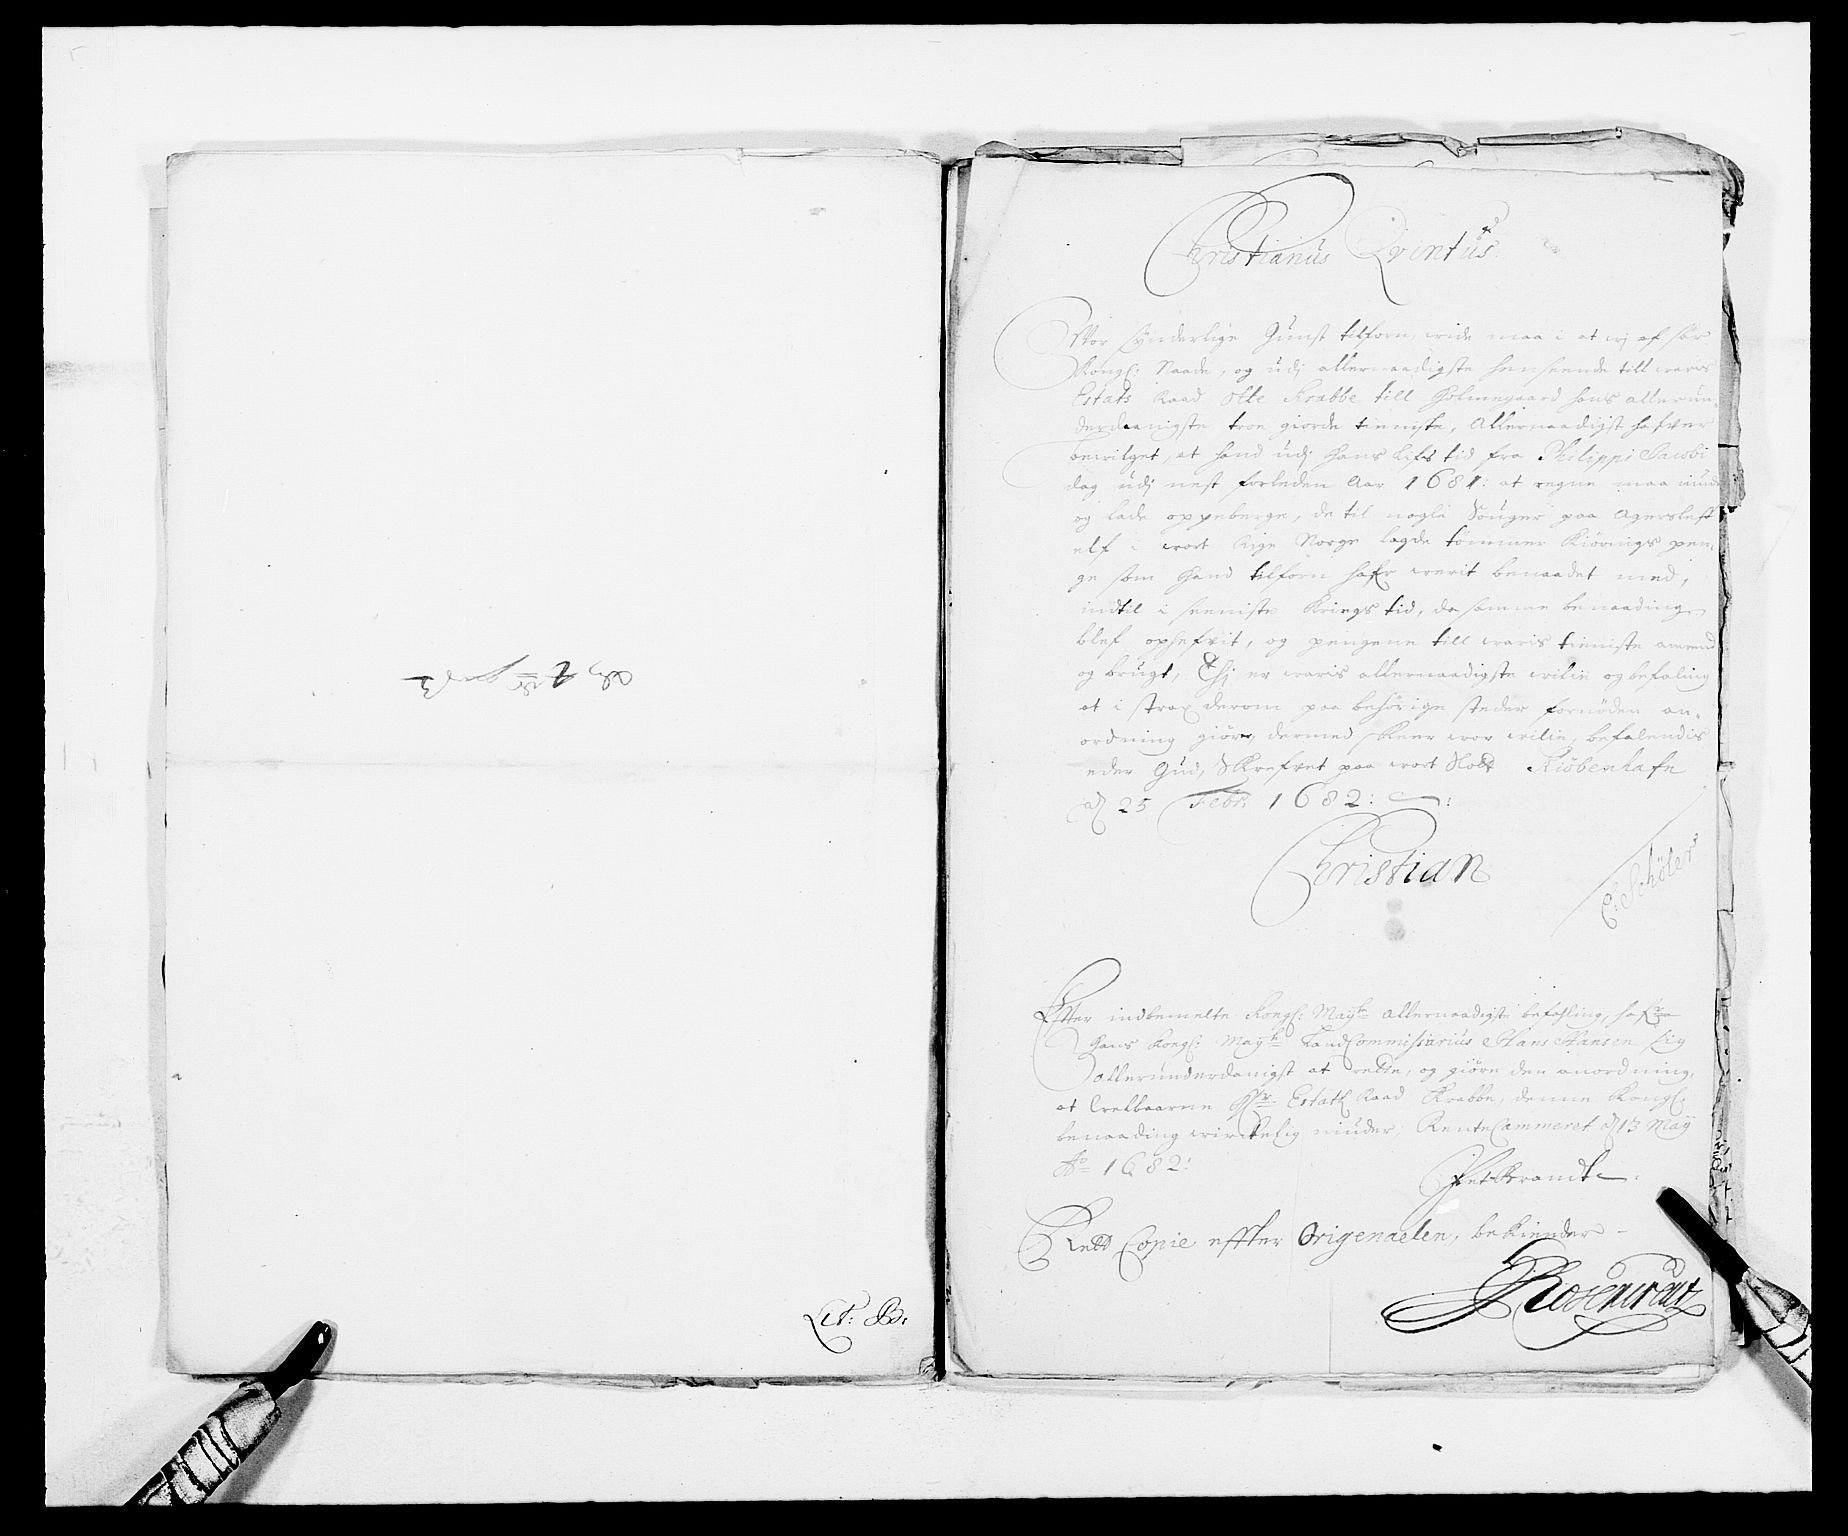 Lit: B:
Christianus Qvintus
Vor synderlige Gunst tilforn, wide maa i at wj af sær
Kongl: Naade, og udj allernaadigste henseende till woris
Estats Raad Otte Krabbe till Holmegaard hans allerun-
derdaanigste troe giorde tieniste, Allernaadigst hafver
bewilget, at hand udj hans Lifs tid fra Philippi Jacobi
dag udj nest forleden Aar 1681: at regne maa niude
og lade oppeberge, de til nogle Souger paa Agersleff
elf i wort Rige Norge lagde tømmer Kiørings pen-
ge som hand tilforn hafr werit benaadet med,
indtil i seeniste Krigs tid, da samme benaading
blef ophefvit, og pengene till woris tieniste anvend
og brugt, Thj er woris allernaadigste wilie og befaling
at i strax derom paa behørige steder fornøden an-
ordning giører, dermed skeer wor wilie, befalendis
eder Gud, Skrefvet paa wort Slott Kiøbenhafn
d 25 Febr: 1682:
Christian
C: Schöler
Efter indbemelte Kongl: Mayts allernaadigste befahling, hafver
Hans Kongl: Mayts LandCommissarius Hans Hansen sig
allerunderdanigst at rette, og giøre den anordning,
at Hr Estats Raad Krabbe, denne Kongl:
benaading wirckelig niuder, RenteCammeret d 13 May
Ao 1682:
P Brandt
Rett Copie effter Origenaelen, bekiender
Rosencrantz